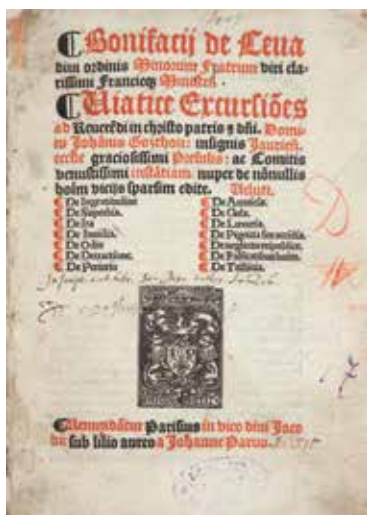 ¶ Bonifatij de Ceua
diui ordinis Minorum Fratrum viri cla-
rissimi Francieqz Ministri.
¶ Viatice Excursiões
ad Reuerẽdi in christo patris ⁊ dñi. Domi-
ni Johãnis Gozthon: insignis Jaurieñ.
ecclie graciosissimi Presulis: ac Comitis
venustissimi instãtiam nuper de nõnullis
hoĩm vicijs sparsim edite. Velut.
¶ De Ingratitudine
¶ De Superbia.
¶ De Ira
¶ De Inuidia.
¶ De Odio
¶ De Detractione.
¶ De Periurio
¶ De Auaricia.
¶ De Gula.
¶ De Luxuria.
¶ De Pigritia siue accidia.
¶ De neglectu reipublice.
¶ De
¶ De Tristicia.
¶ Venundãtur Parisius in vico diui Jaco
bi sub lilio aureo a Johanne Paruo.